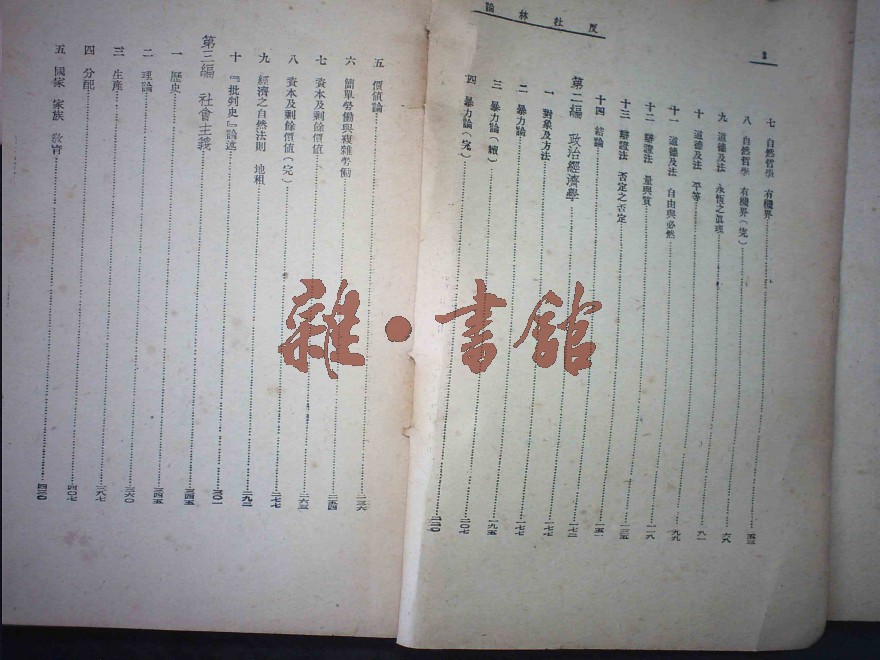 反杜林論
2
七 自然哲學 有機界 五三
八 自然哲學 有機界(完) 六八
九 道德及法 永恆之眞理
十 道德及法 平等 八一
十一 道德及法 自由與必然 九九
十二 辯證法 量與質 一一八
十三 辯證法 否定之否定 一三五
十四 結論 一五一
第二編 政治經濟學 一七三
一 對象及方法 一七七
二 暴力論 一七七
三 暴力論(續) 一九五
四 暴力論(完) 二〇七
五 價値論 二三六
六 簡單勞働與複雜勞働 二五四
七 資本及剩餘價値 二六三
八 資本及剩餘價値(完) 二七七
九 經濟之自然法則 地租 二九二
十 『批判史』論述 三〇一
第三編 社會主義 三四五
一 歷史 三四五
二 理論 三六〇
三 生產 三八七
四 分配 四〇七
五 國家 家族 敎育 四三〇
雜·書館